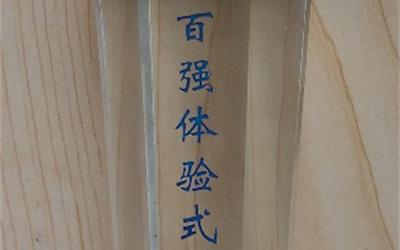 百强体验式